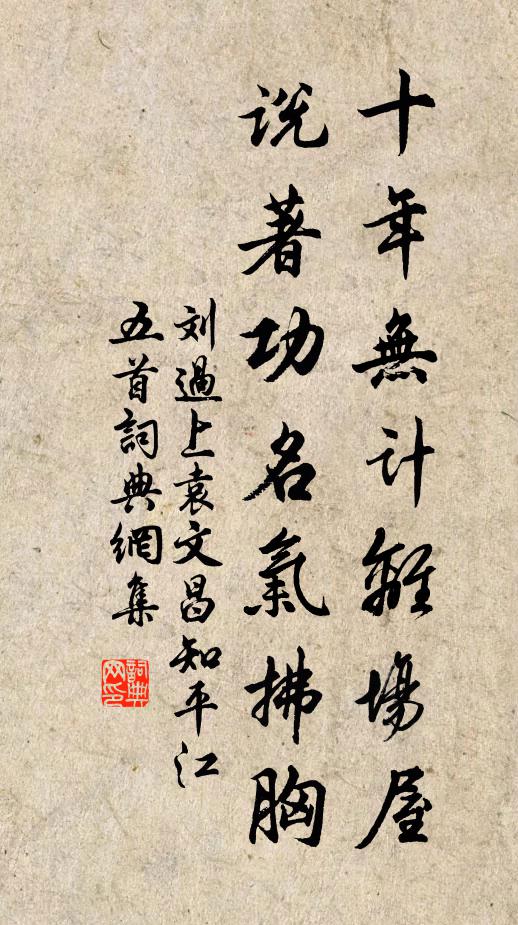 十年無計離場屋
説著功名氣拂胸
刘過上袁文昌知平江
五首詞典網集
詞典
网印